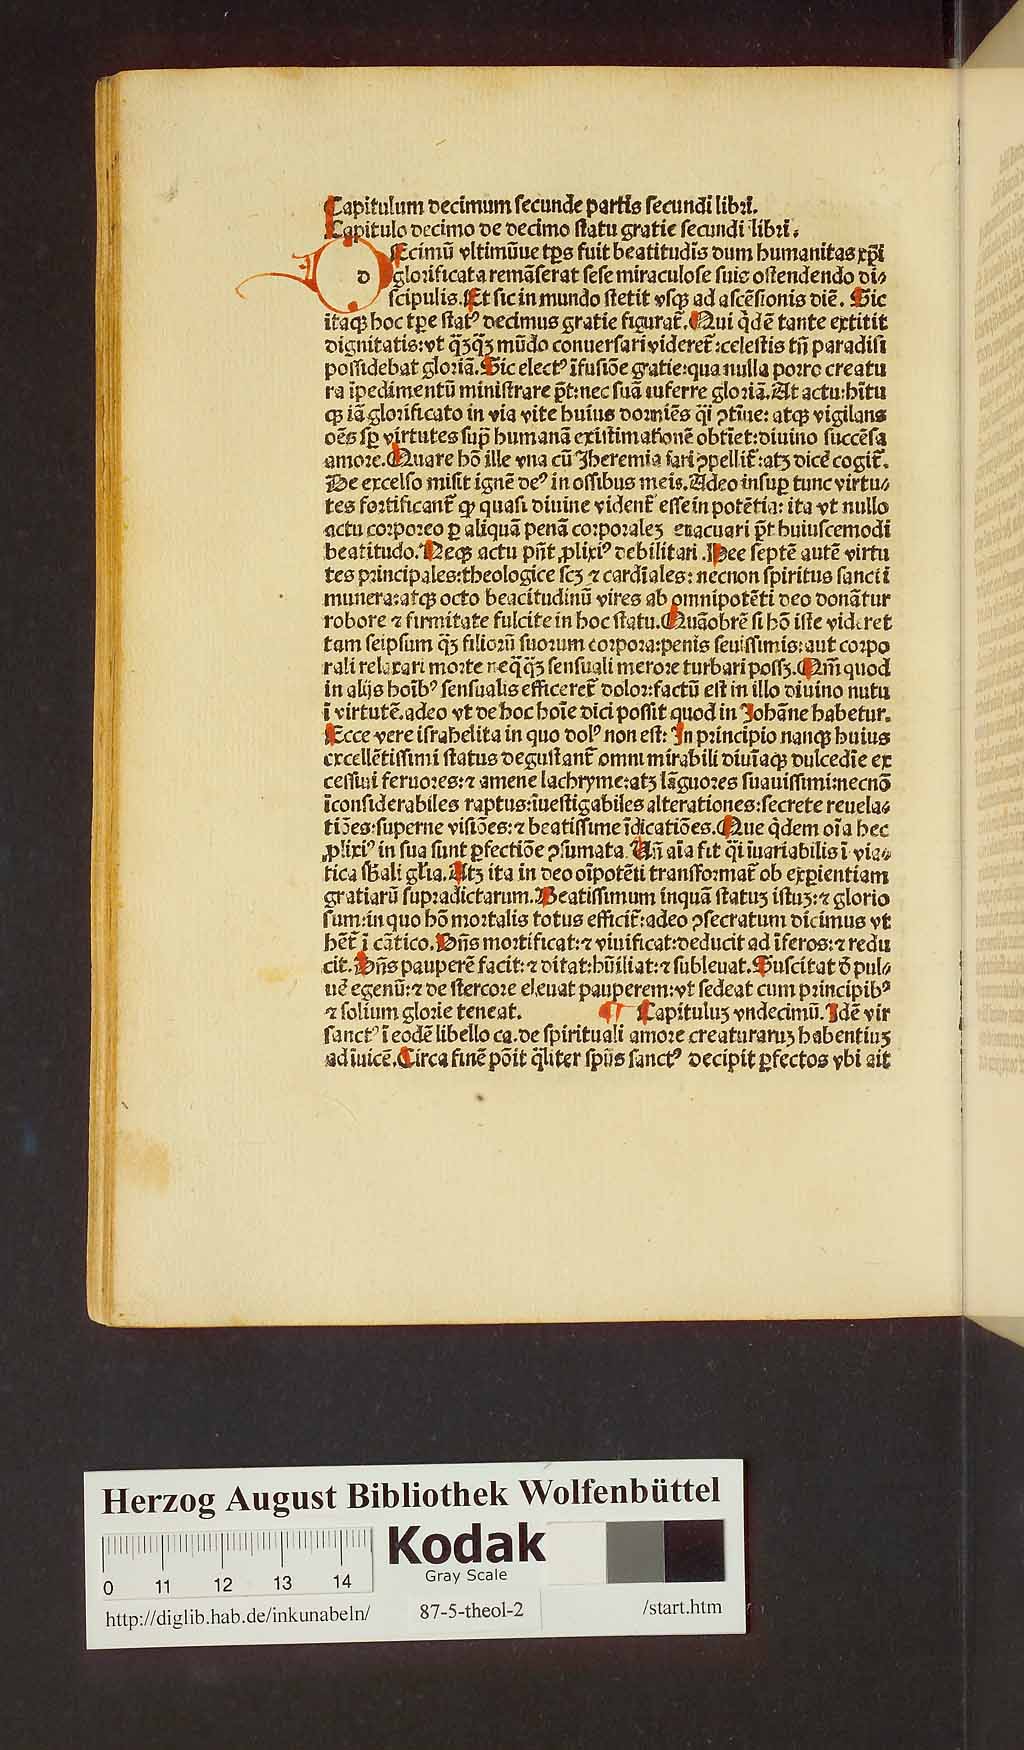 Capitulum decimum secunde partis secundi libri.
Capitulo decimo de decimo statu gratie secundi libri.
dEcimū vltimūue tp̄s fuit beatitudīs dum humanitas xp̄i
glorificata remāserat sese miraculose suis ostendendo di⸗
scipulis. Et sic in mundo stetit vsq̨ ad ascēsionis diē. Sic
itaq̨ hoc tp̄e statꝰ decimus gratie figurat᷑. Qui q̇dē tante extitit
dignitatis: vt q̄ꝫq̄ꝫ mūdo conuersari videret᷑: celestis tn̄ paradisi
possidebat gloriā. Sic electꝰ ĩfusiōe gratie: qua nulla porro creatu
ra ĩpedimentū ministrare pōt: nec suā auferre gloriā. At actu: hĩtu
q̨ iā glorificato in via vite huius dormiēs q̄i ꝯtĩue: atq̨ vigilans
oēs sp̄ virtutes sup̄ humanā existimationē obtĩet: diuino succēsa
amore. Quare hō ille vna cū Jheremia fari ꝯpellit᷑: atꝫ dicē cogit᷑.
De excelso misit ignē deꝰ in ossibus meis. Adeo insuꝑ tunc virtu⸗
tes fortificant᷑ q̨ quasi diuine vident᷑ esse in potētia: ita vt nullo
actu corporeo ꝑ aliquā penā corporaleꝫ euacuari pōt huiuscemodi
beatitudo. Neq̨ actu pn̄t ꝓlixiꝰ debilitari. Hee septē autē virtu
tes principales: theologice scꝫ ⁊ cardĩales: necnon spiritus sancti ĩ
munera: atq̨ octo beatitudinū vires ab omnipotēti deo donātur
robore ⁊ firmitate fulcite in hoc statu. Quāobrē si hō iste videret
tam seipsum q̄ꝫ filiorū suorum corpora: penis seuissimis: aut corpo
rali relaxari morte neq̄q̄ꝫ sensuali merore turbari possꝫ. Qm̄ quod
in alijs hoĩbꝰ sensualis efficeret᷑ dolor: factū est in illo diuino nutu
ĩ virtutē. adeo vt de hoc hoĩe dici possit quod in Johāne habetur.
Ecce vere israhelita in quo dolꝰ non est: In principio nanq̨ huius
excellētissimi status degustant᷑ omni mirabili diuĩaq̨ dulcedĩe ex
cessiui feruores: ⁊ amene lachryme: atꝫ lāguores suauissimi: necnō
ĩconsiderabiles raptus: ĩuestigabiles alterationes: secrete reuela⸗
tiōes: superne visiōes: ⁊ beatissime ĩdicatiōes. Que q̇dem oĩa hec
ꝓlixiꝰ in sua sunt ꝑfectiōe ꝯsumata. Un̄ aĩa fit q̄i ĩuariabilis ĩ via⸗
tica sb̄ali gl̄ia. Atꝫ ita in deo oĩpotēti transformat᷑ ob exꝑientiam
gratiarū supradictarum. Beatissimum inquā statuꝫ istuꝫ: ⁊ glorio
sum: in quo hō mortalis totus efficit᷑: adeo ꝯsecratum dicimus vt
hēt᷑ ĩ cātico. Dn̄s mortificat: ⁊ viuificat: deducit ad ĩferos: ⁊ redu
cit. Dn̄s pauperē facit: ⁊ ditat: hūiliat: ⁊ subleuat. Suscitat d̄ pul⸗
uē egenū: ⁊ de stercore eleuat pauperem: vt sedeat cum principibꝰ
⁊ solium glorie teneat. ¶ Capituluꝫ vndecimū. Idē vir
sanctꝰ ĩ eodē libello ca. de spirituali amore creaturaruꝫ habentiuꝫ
ad ĩuicē. Circa finē pōit q̄liter spūs sanctꝰ decipit ꝑfectos vbi ait
Herzog August Bibliothek Wolfenbüttel
Kodak
Gray Scale
0 11 12 13 14
http://diglib.hab.de/inkunabeln/ 87-5-theol-2 /start.htm